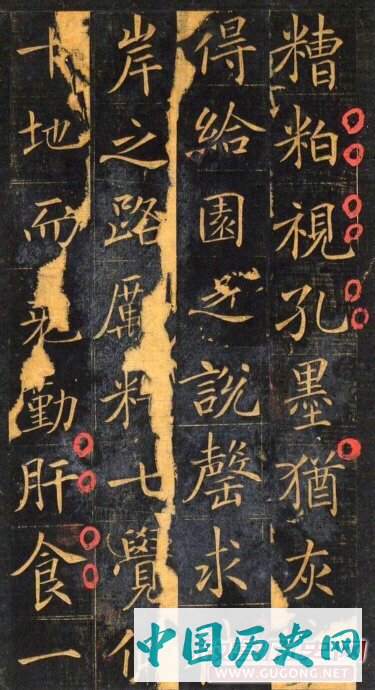 糟粕視孔墨猶灰
得給園之說罄求
岸之路厲料七覺
十地而勤肝食一
中国历史网
WWW.GUGONG.NET